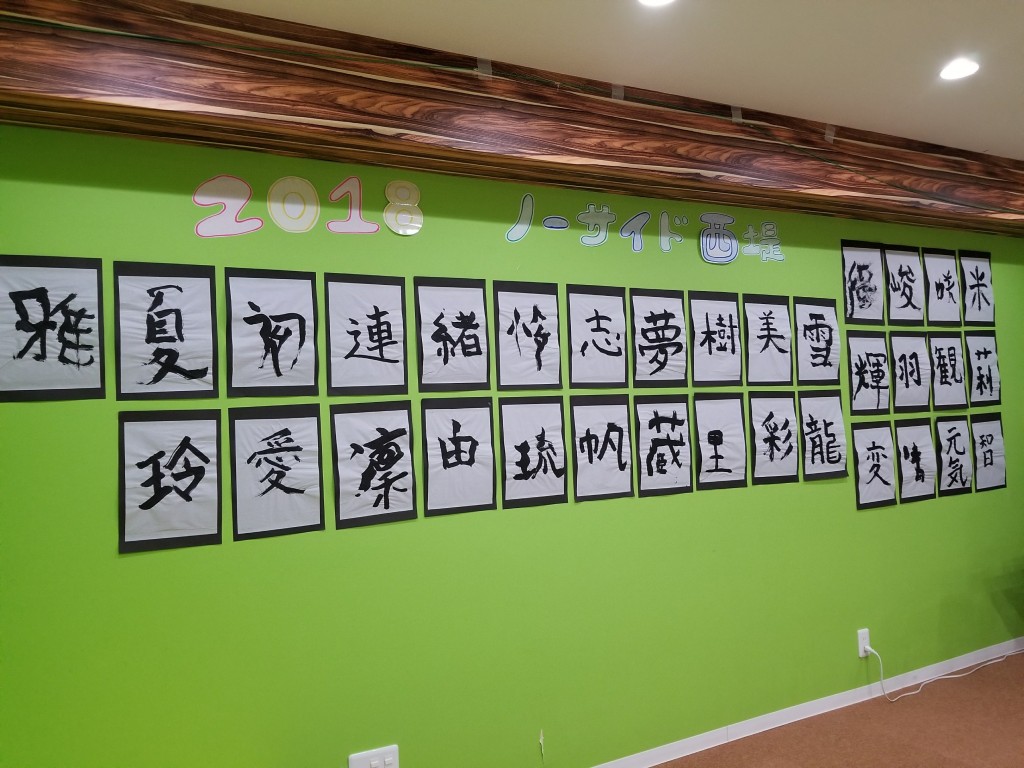 2018 ノーサイド西堤
雅 夏 初 連 緒 修 志 夢 樹 美 雪
玲 愛 凛 由 琉 帆 蔵 里 彩 龍
優 峻 咲 米
輝 羽 観 莉
変 晴 元気 智